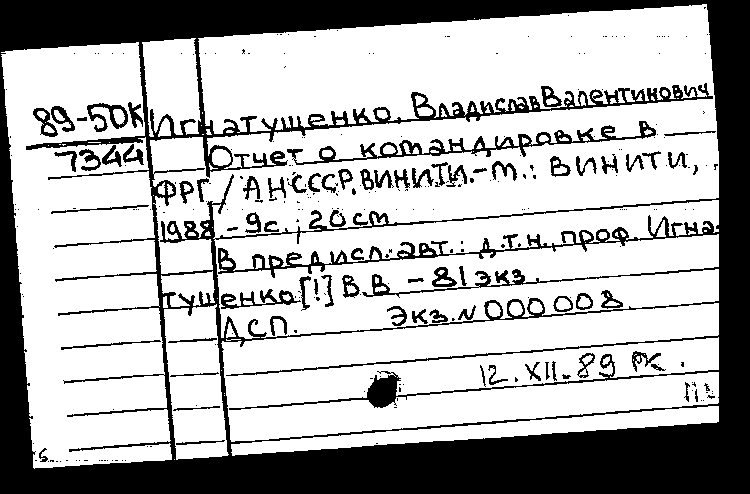 89-5ДК Игнатущенко, Владислав Валентинович
7344 Отчет о командировке в
ФРГ / АН СССР, ВИНИТИ.-М.: ВИНИТИ,
1988. - 9с.; 20 см.
В предисл. авт.: д.т.н., проф. Игна-
тущенко [!] В.В - 81 экз.
ДСП. Экз. N 000008.
12.XII.89 РК.